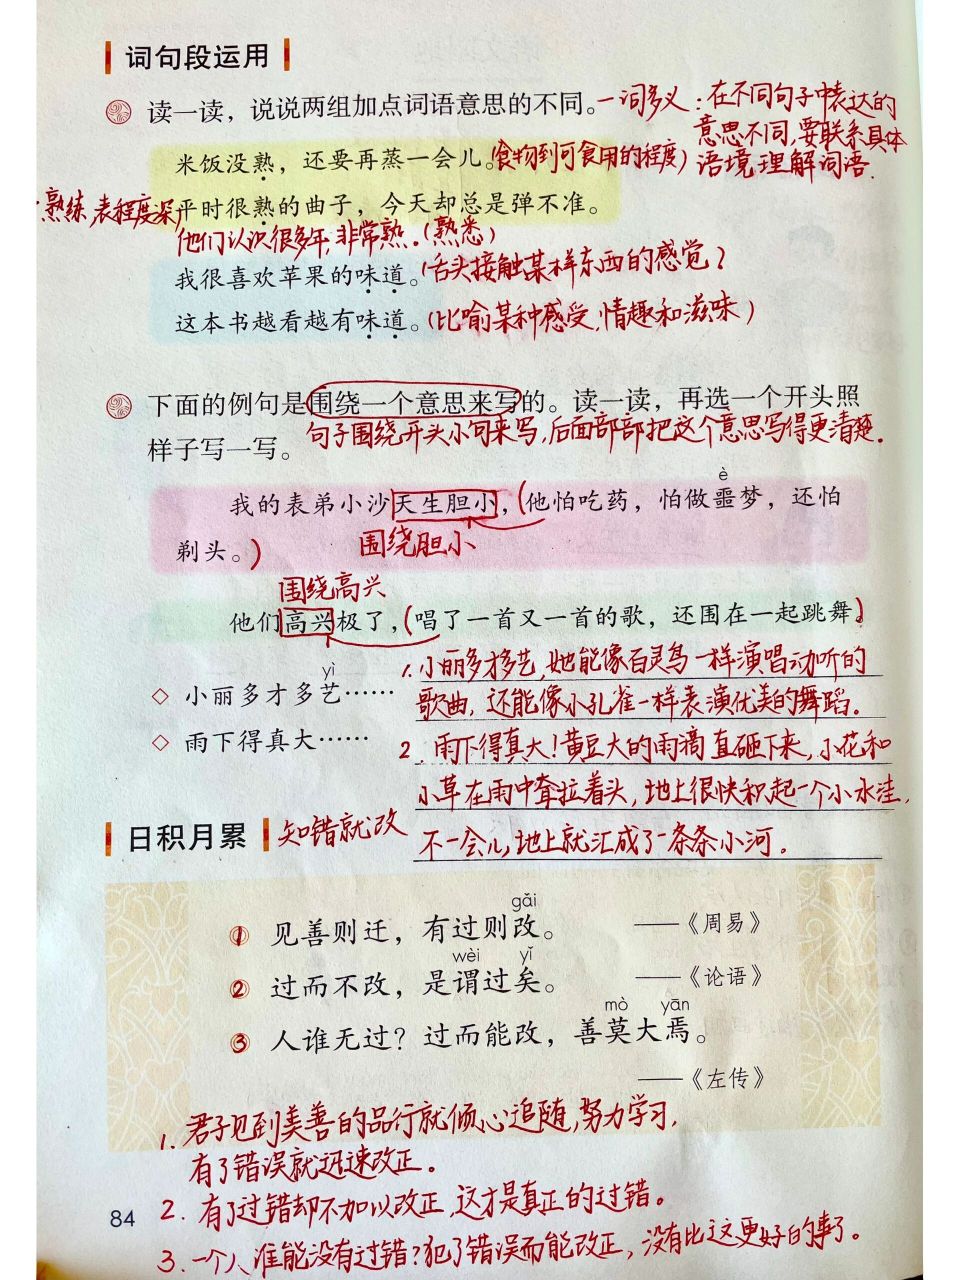 词句段运用
读一读，说说两组加点词语意思的不同。一词多义：在不同句子中表达的
意思不同，要联系具体
米饭没熟，还要再蒸一会儿。(食物到可食用的程度) 语境理解词语.
熟练,表程度深
平时很熟的曲子，今天却总是弹不准。
他们认识很多年,非常熟.(熟悉)
我很喜欢苹果的味道。(舌头接触某样东西的感觉)
这本书越看越有味道。(比喻某种感受,情趣和滋味)
下面的例句是围绕一个意思来写的。读一读，再选一个开头照
句子围绕开头小句来写,后面部部把这个意思写得更清楚.
样子写一写。
è
我的表弟小沙天生胆小，(他怕吃药，怕做噩梦，还怕
剃头。)
围绕胆小
围绕高兴
他们高兴极了，(唱了一首又一首的歌，还围在一起跳舞。)
yì
◇ 小丽多才多艺……
◇ 雨下得真大……
1.小丽多才多艺,她能像百灵鸟一样演唱动听的
歌曲,还能像小孔雀一样表演优美的舞蹈.
2.雨下得真大!黄豆大的雨滴直砸下来,小花和
小草在雨中耷拉着头,地上很快积起一个小水洼,
不一会儿,地上就汇成了一条条小河.
日积月累
知错就改
gǎi
① 见善则迁，有过则改。 ——《周易》
wèi yǐ
② 过而不改，是谓过矣。 ——《论语》
mò yān
③ 人谁无过？过而能改，善莫大焉。
——《左传》
1.君子见到美善的品行就倾心追随,努力学习,
有了错误就迅速改正.
2.有了过错却不加以改正,这才是真正的过错.
3.一个人谁能没有过错?犯了错误而能改正,没有比这更好的事了.
84